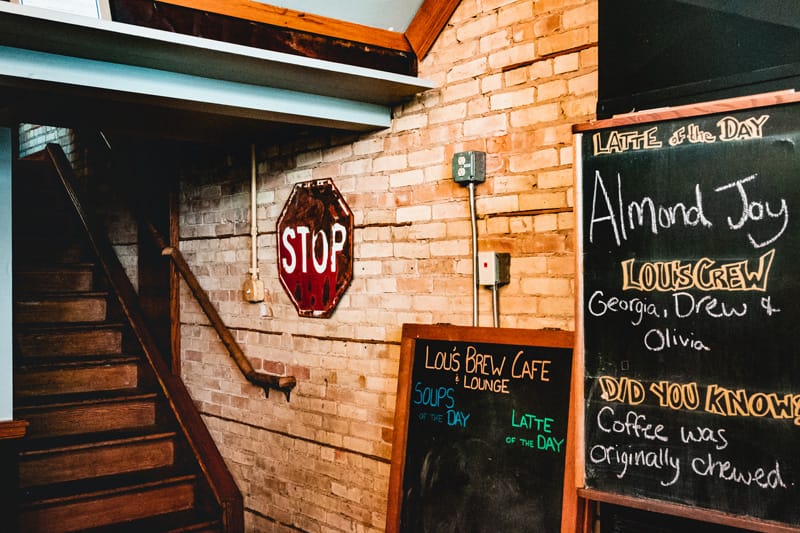 STOP
LOU'S BREW CAFE
& LOUNGE
SOUPS
OF THE DAY
LATTE
OF THE DAY
LATTE OF THE DAY
Almond Joy
LOU'S CREW
Georgia, Drew &
Olivia
DID YOU KNOW?
Coffee was
originally chewed.